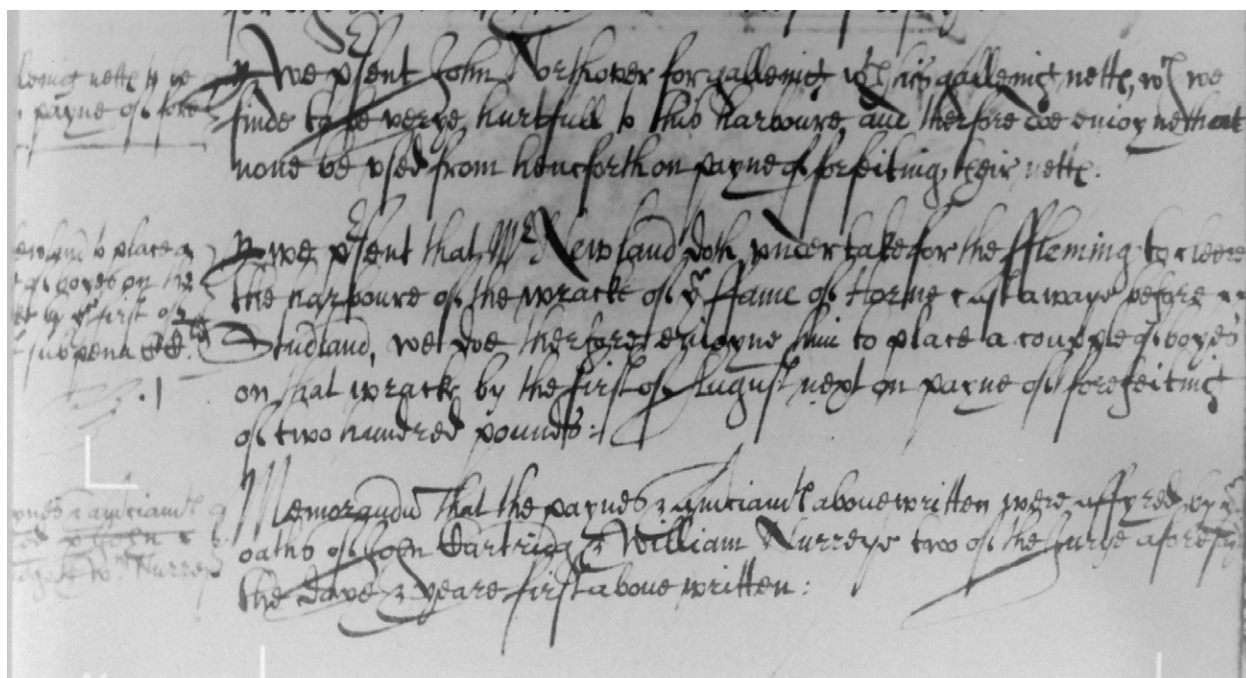 we p'sent John Northover for gallering wth his gallering nette, wch we
finde to be verye hurtfull to this harboure, and therfore doe enioyne that
none be vsed from hencforth on payne of forfeiting their nette.
we p'sent that Mr Newland doth vndertake for the ffleming to cleere
the harboure of the wracke of ye ffame of Horne cast awaye before
Studland, we doe therfore enioyne him to place a couple of boyes
on that wrack by the first of August next on payne of forefeiting
of two hundred pounds:
Memorandu That the paynes & amciamte aboue written were affyred by ye
oaths of John Cartridg & William Nurreys two of the Jurye aforesd
the daye & yeare first aboue written:
nette to be
payne of fore
Newland to place a
of boyes on the
by ye first of
sub pena
paynes & amciamte
John
Wm Nurreys